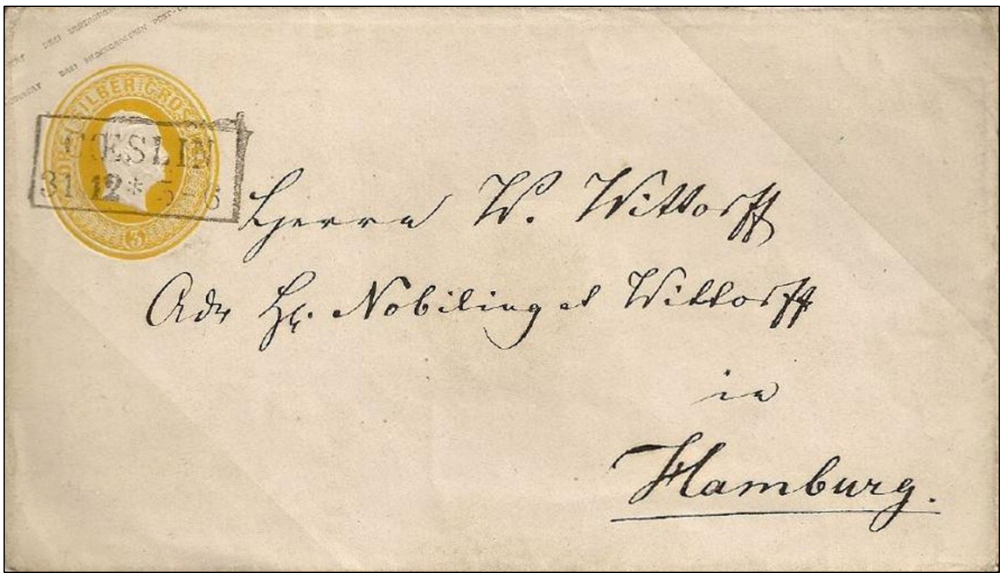 DREI SILBERGROSCHEN
3
CŒSLIN
31 12 * 5-6
Herrn W. Wittorff
Adr Hr. Nobiling et Wittorff
in
Hamburg.